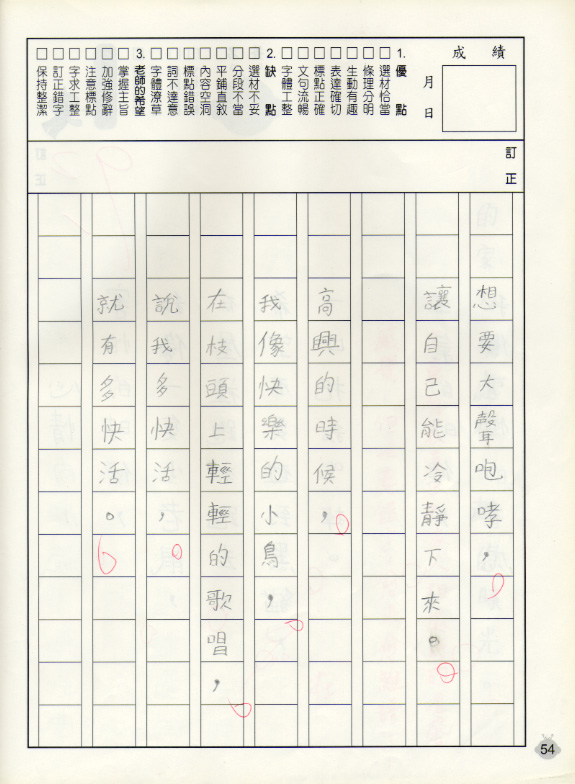 成績
月
日
1.優點
□選材恰當
□條理分明
□生動有趣
□表達確切
□標點正確
□文句流暢
□字體工整
2.缺點
□選材不妥
□分段不當
□平鋪直敘
□內容空洞
□標點錯誤
□詞不達意
□字體潦草
3.老師的希望
□掌握主旨
□加強修辭
□注意標點
□字求工整
□訂正錯字
□保持整潔
訂正
想要大聲咆哮，
讓自己能冷靜下來。
高興的時候，
我像快樂的小鳥，
在枝頭上輕輕的歌唱，
說我多快活，
就有多快活。
54